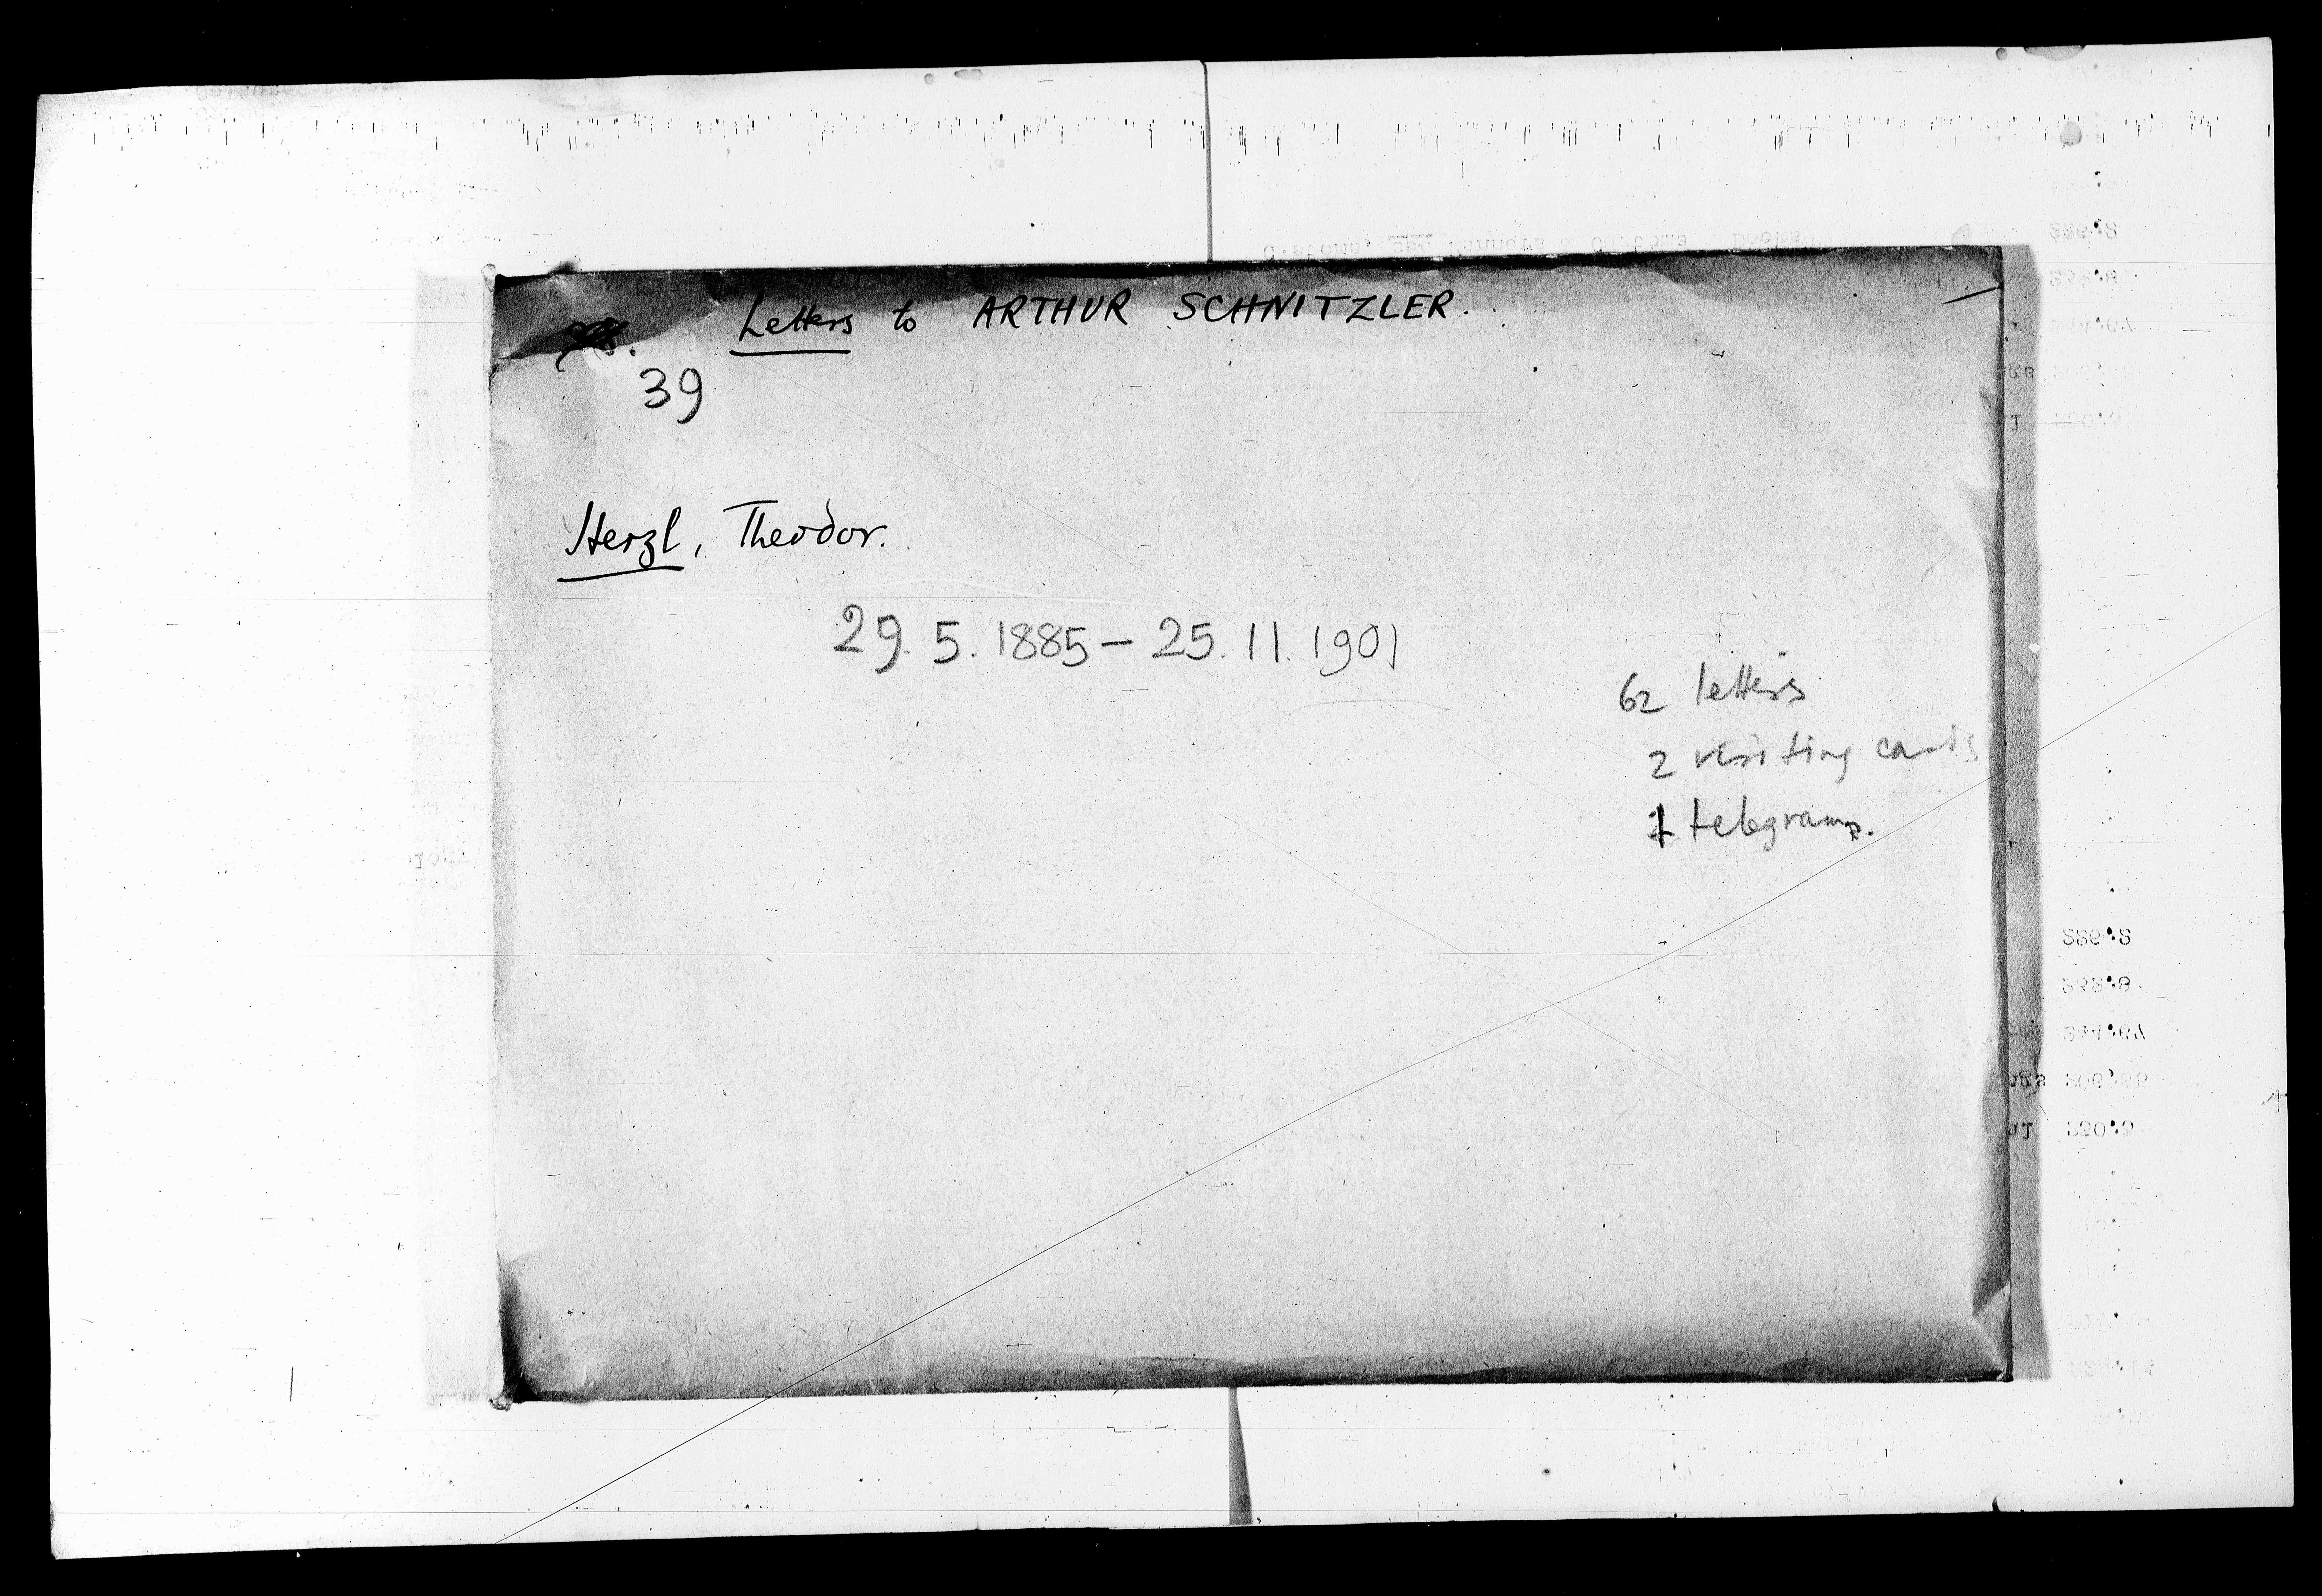 Letters to ARTHUR SCHNITZLER.
39
Herzl, Theodor.
29. 5. 1885 – 25. 11. 1901
62 letters
2 visiting cards
1 telegram.